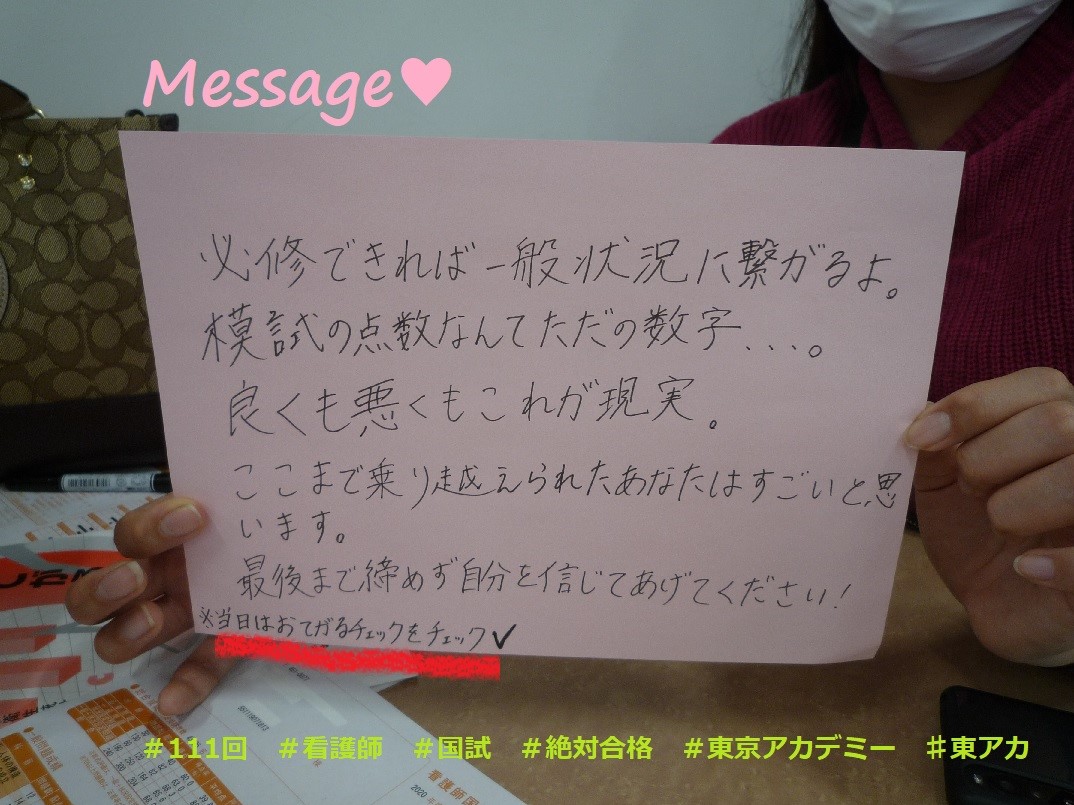 Message♥
必修できれば一般状況に繋がるよ。
模試の点数なんてただの数字...。
良くも悪くもこれが現実。
ここまで乗り越えられたあなたはすごいと思
います。
最後まで締めず自分を信じてあげてください!
※当日はおてがるチェックをチェック✓
#111回 #看護師 #国試 #絶対合格 #東京アカデミー #東アカ